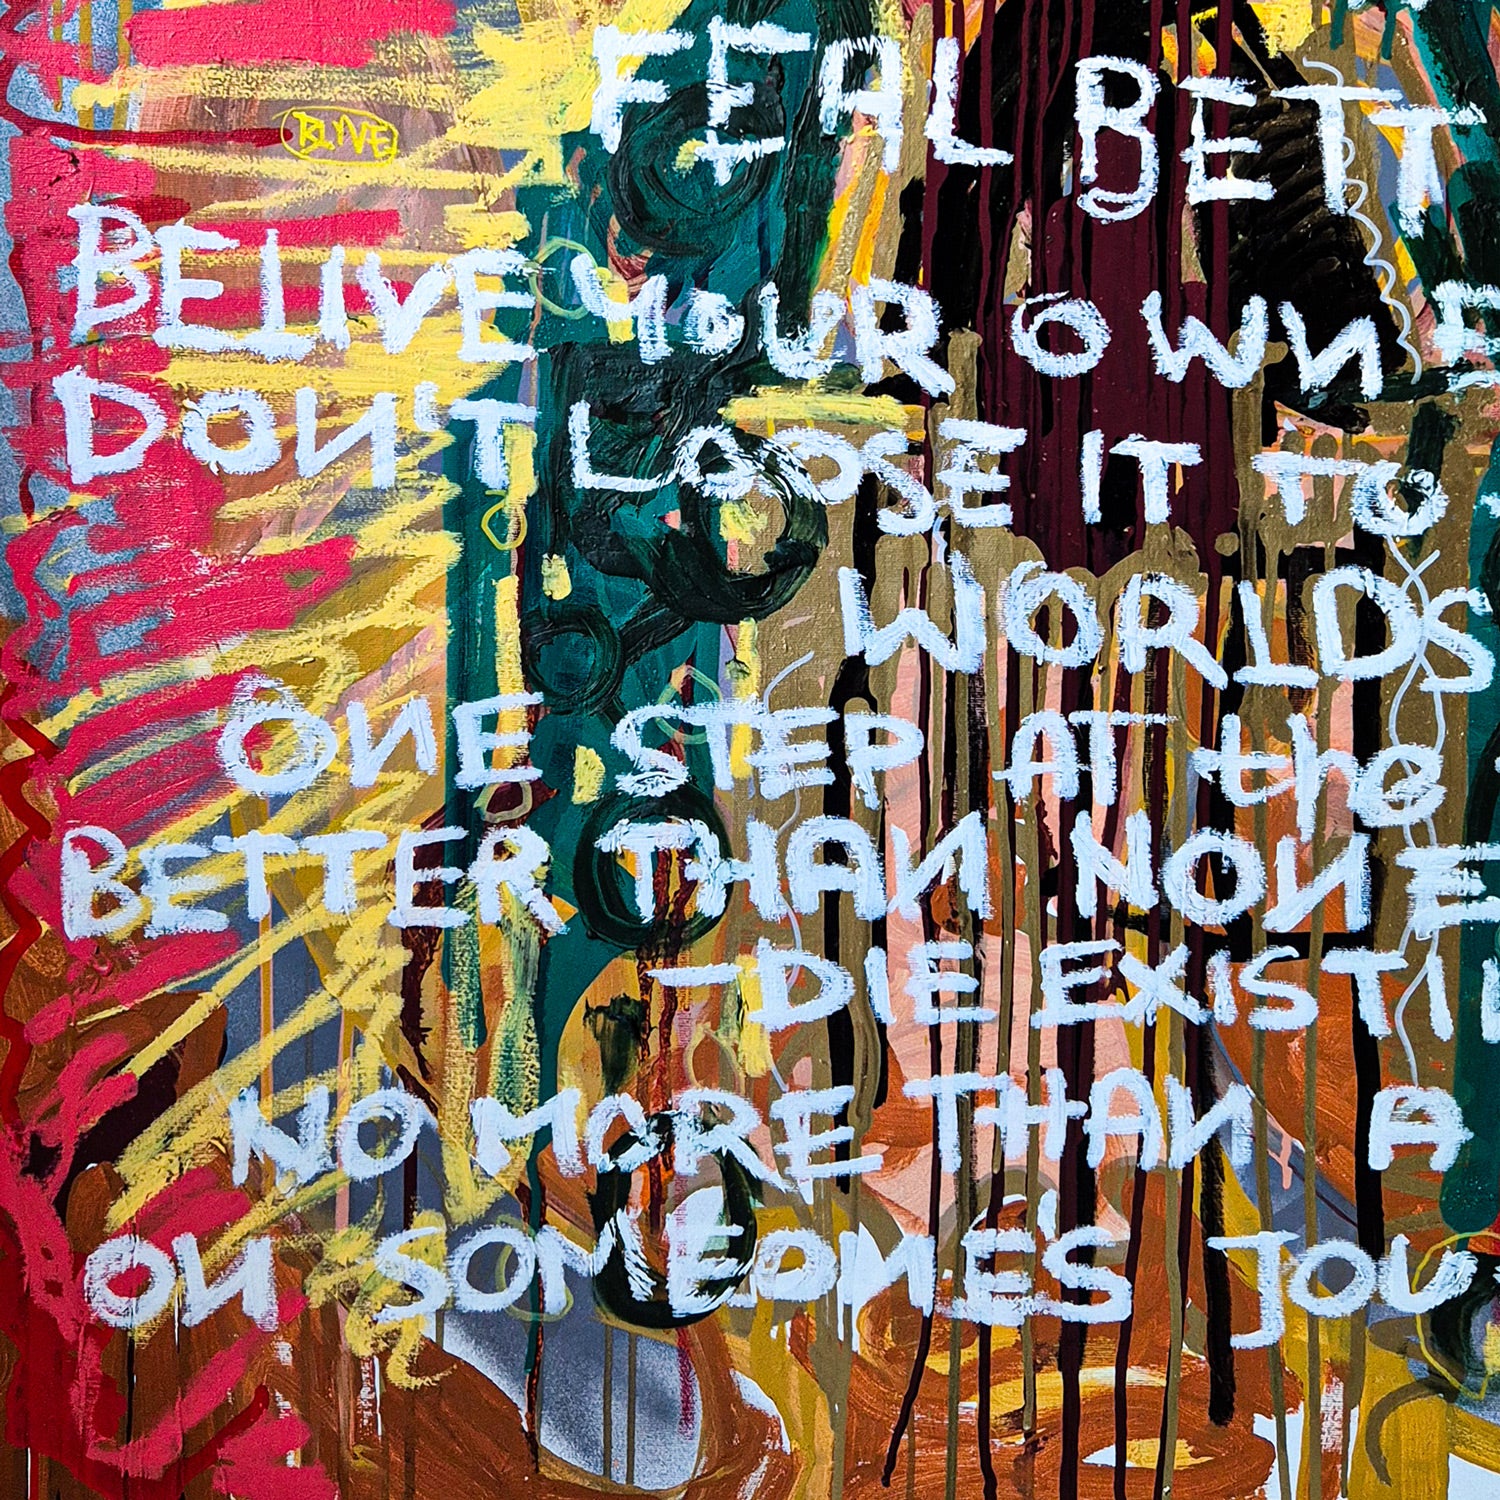 FEAL BETT
BLIVE
BELIVE YOUR OWN
DON'T LOOSE IT TO
WORLDS
ONE STEP AT the
BETTER THAN NONE
-DIE EXISTI
NO MORE THAN A
ON SOMEOMES JOU